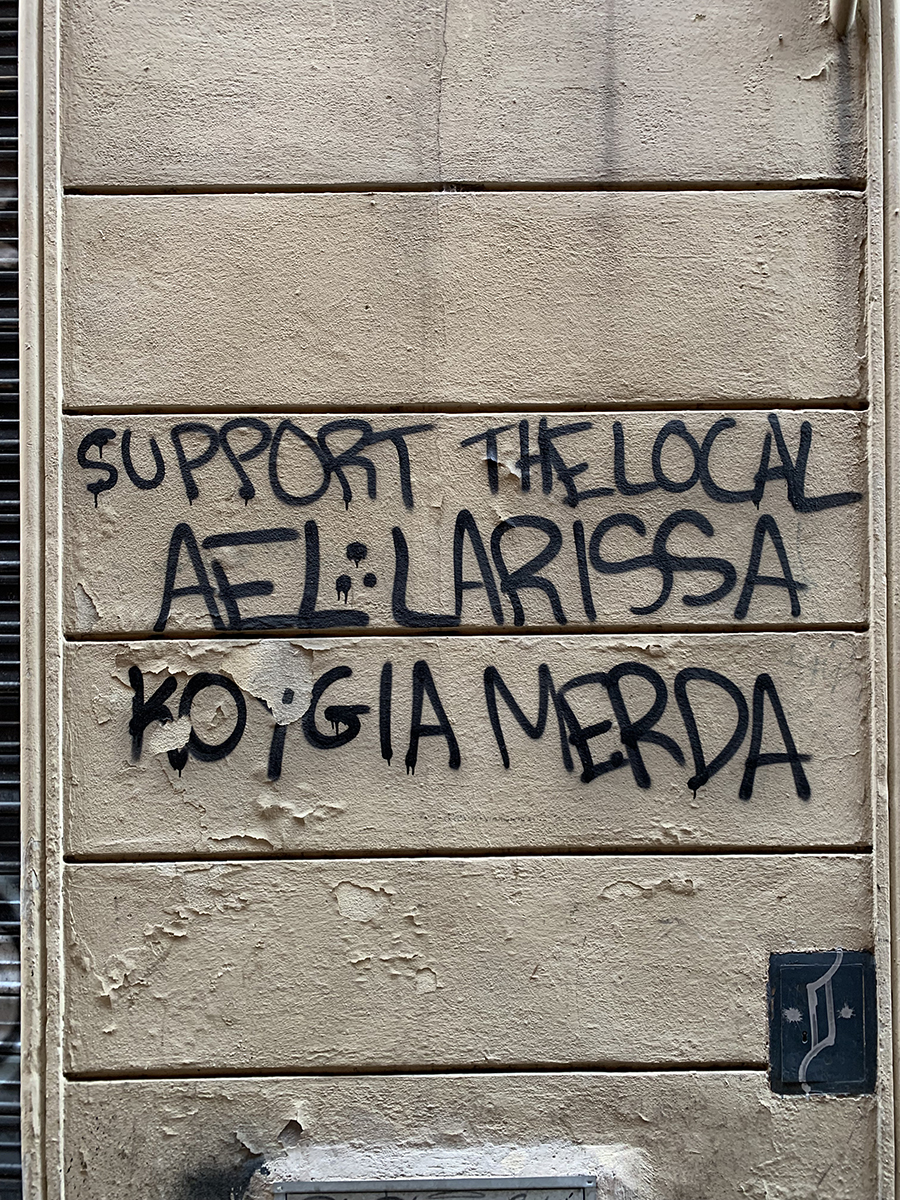 SUPPORT THE LOCAL
AEL∴LARISSA
MERDA